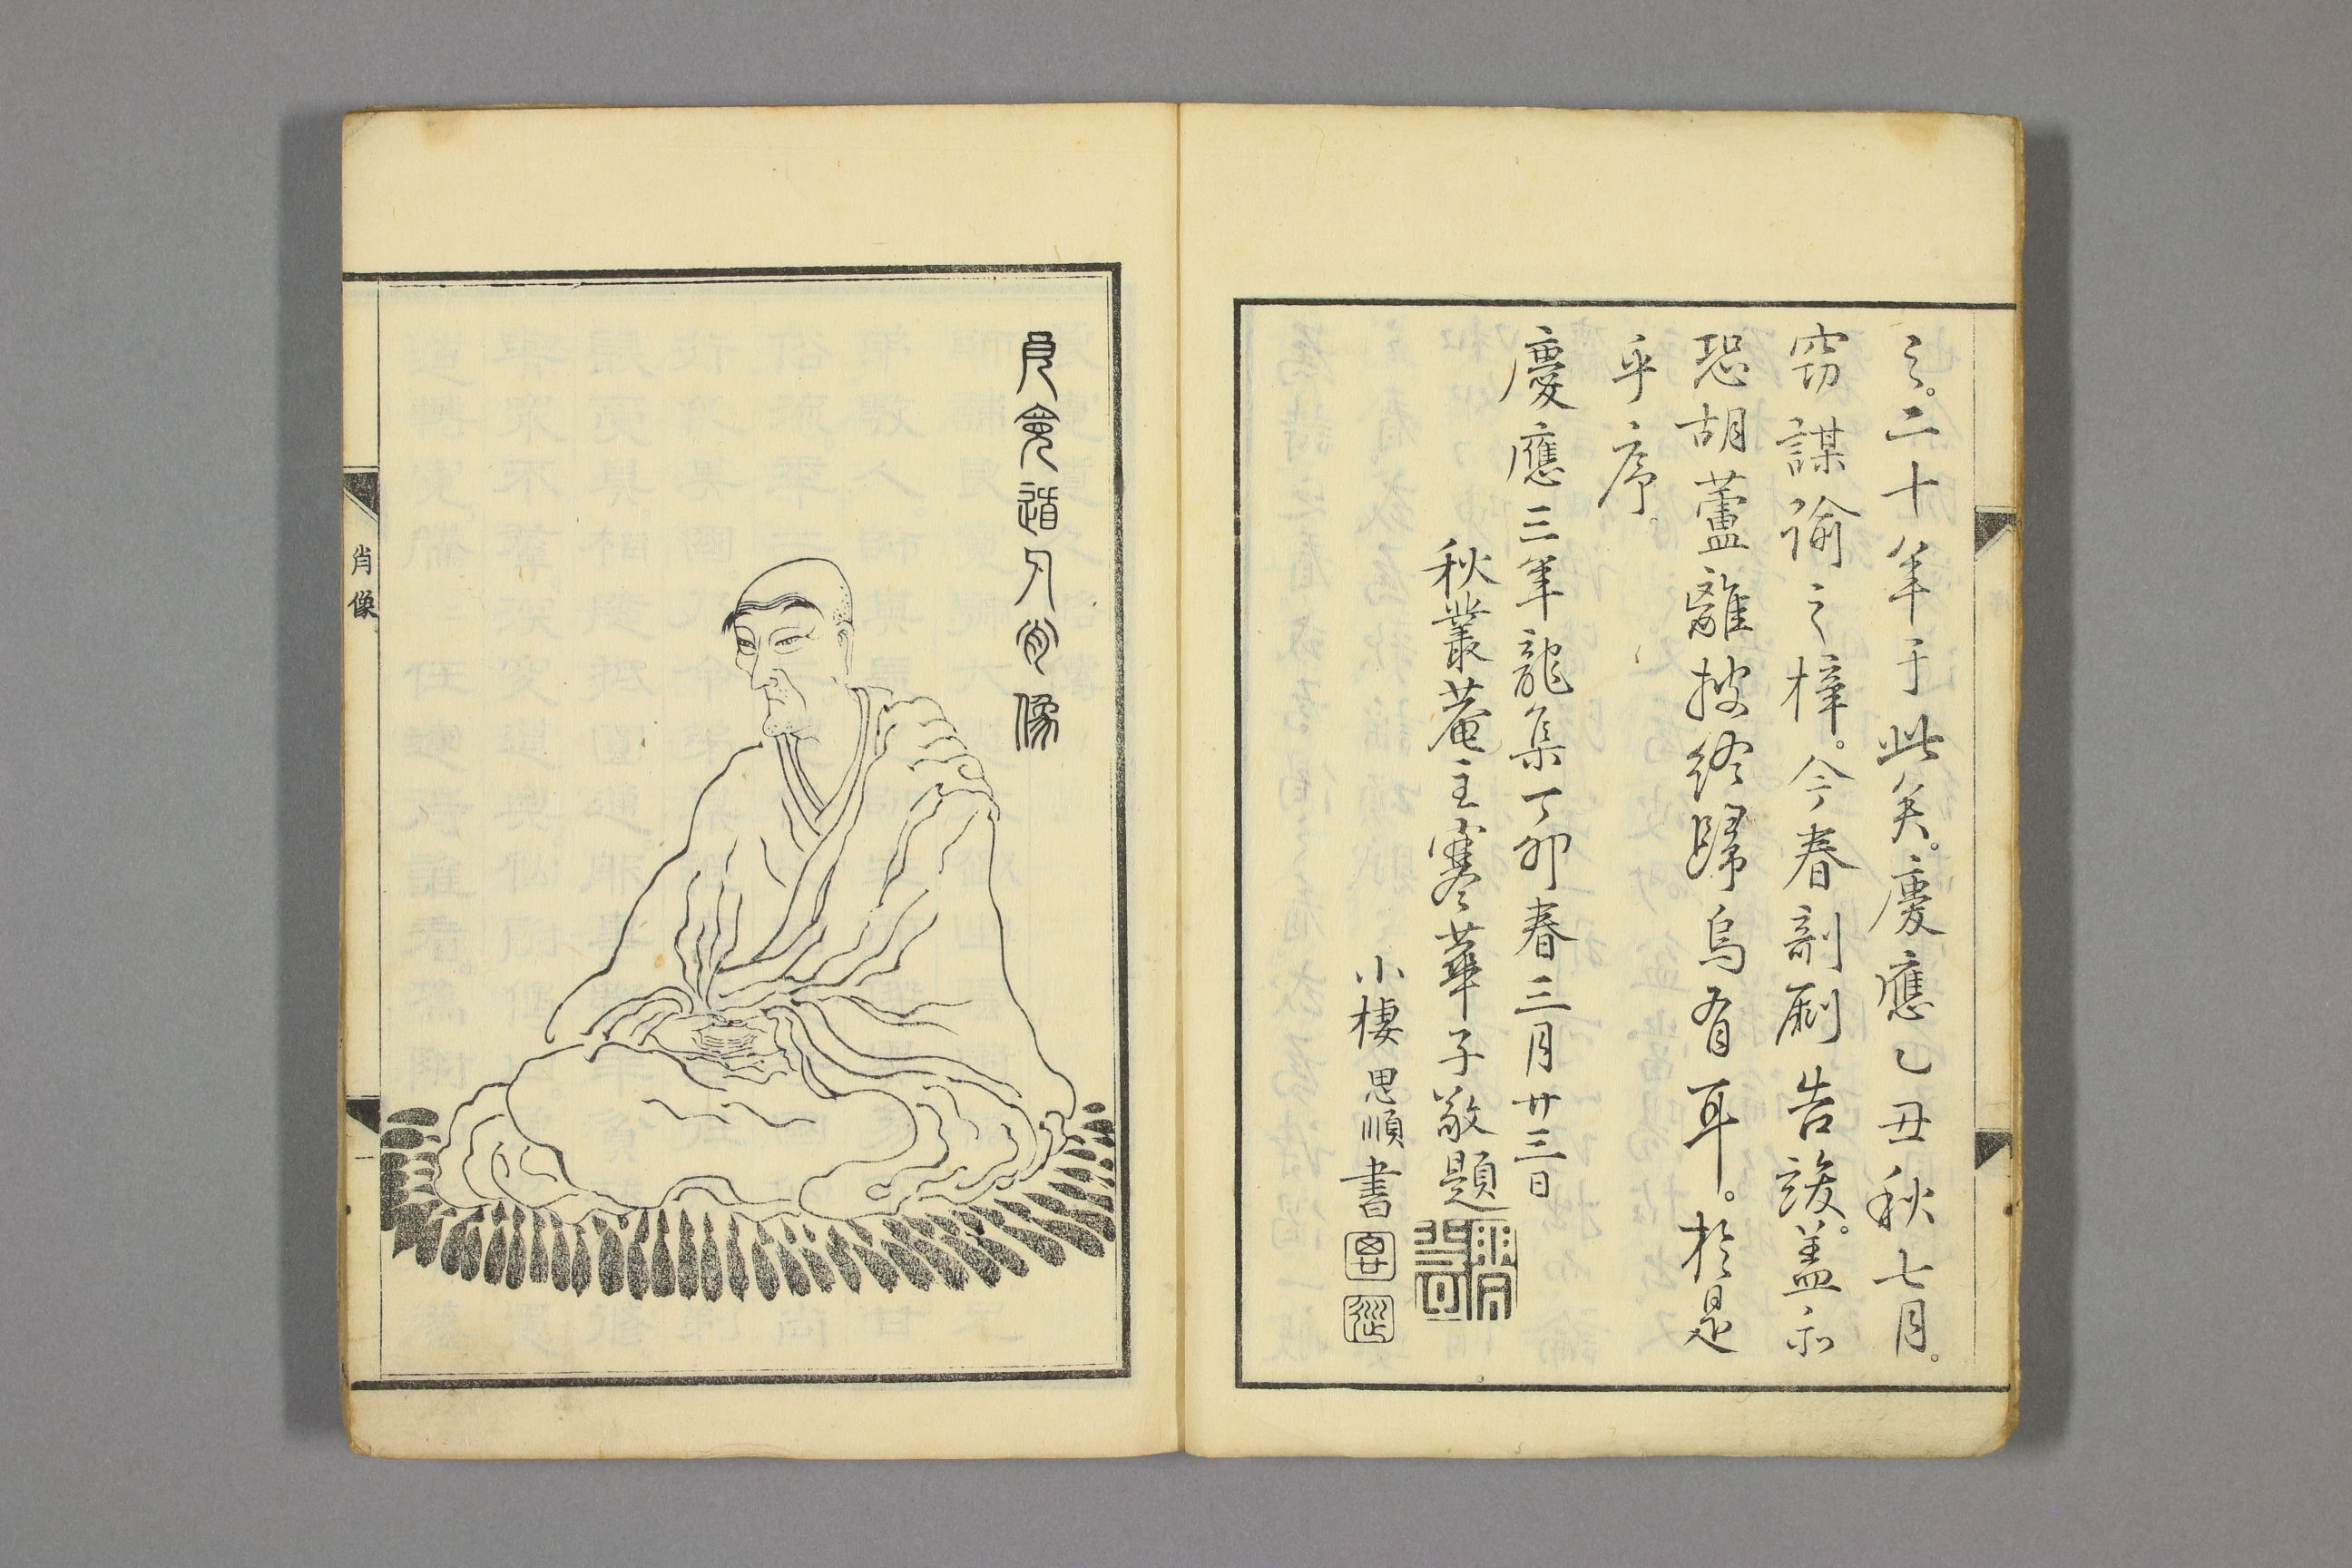 之。二十年于此矣。慶應乙丑秋七月。
窃謀諭之梓。今春剞劂告竣。蓋不
恐胡蘆離披終歸烏有耳。於是
乎序。
慶應三年龍集丁卯春三月廿三日
秋叢菴主寒華子敬題
小棲思順書
良寛道人肖像
肖像